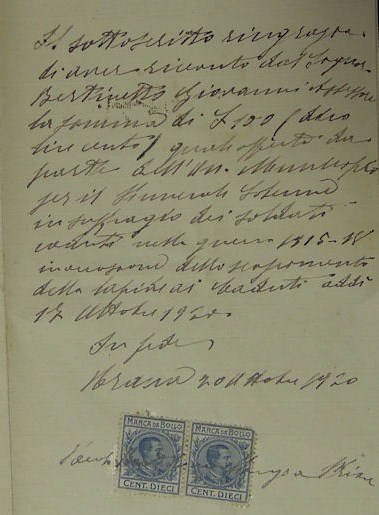 Il sottoscritto ringrazia
di aver ricevuto dal Signor
Bertinetto Giovanni
la somma di L 100 (dico
lire cento) quale offerta da
parte dell'On. Municipio
per il funerale solenne
in suffragio dei soldati
caduti nella guerra 1915-18
in occasione dello scoprimento
della lapide ai Caduti addì
17 Ottobre 1920.
In fede
20 Ottobre 1920
MARCA DA BOLLO MARCA DA BOLLO
CENT. DIECI CENT. DIECI